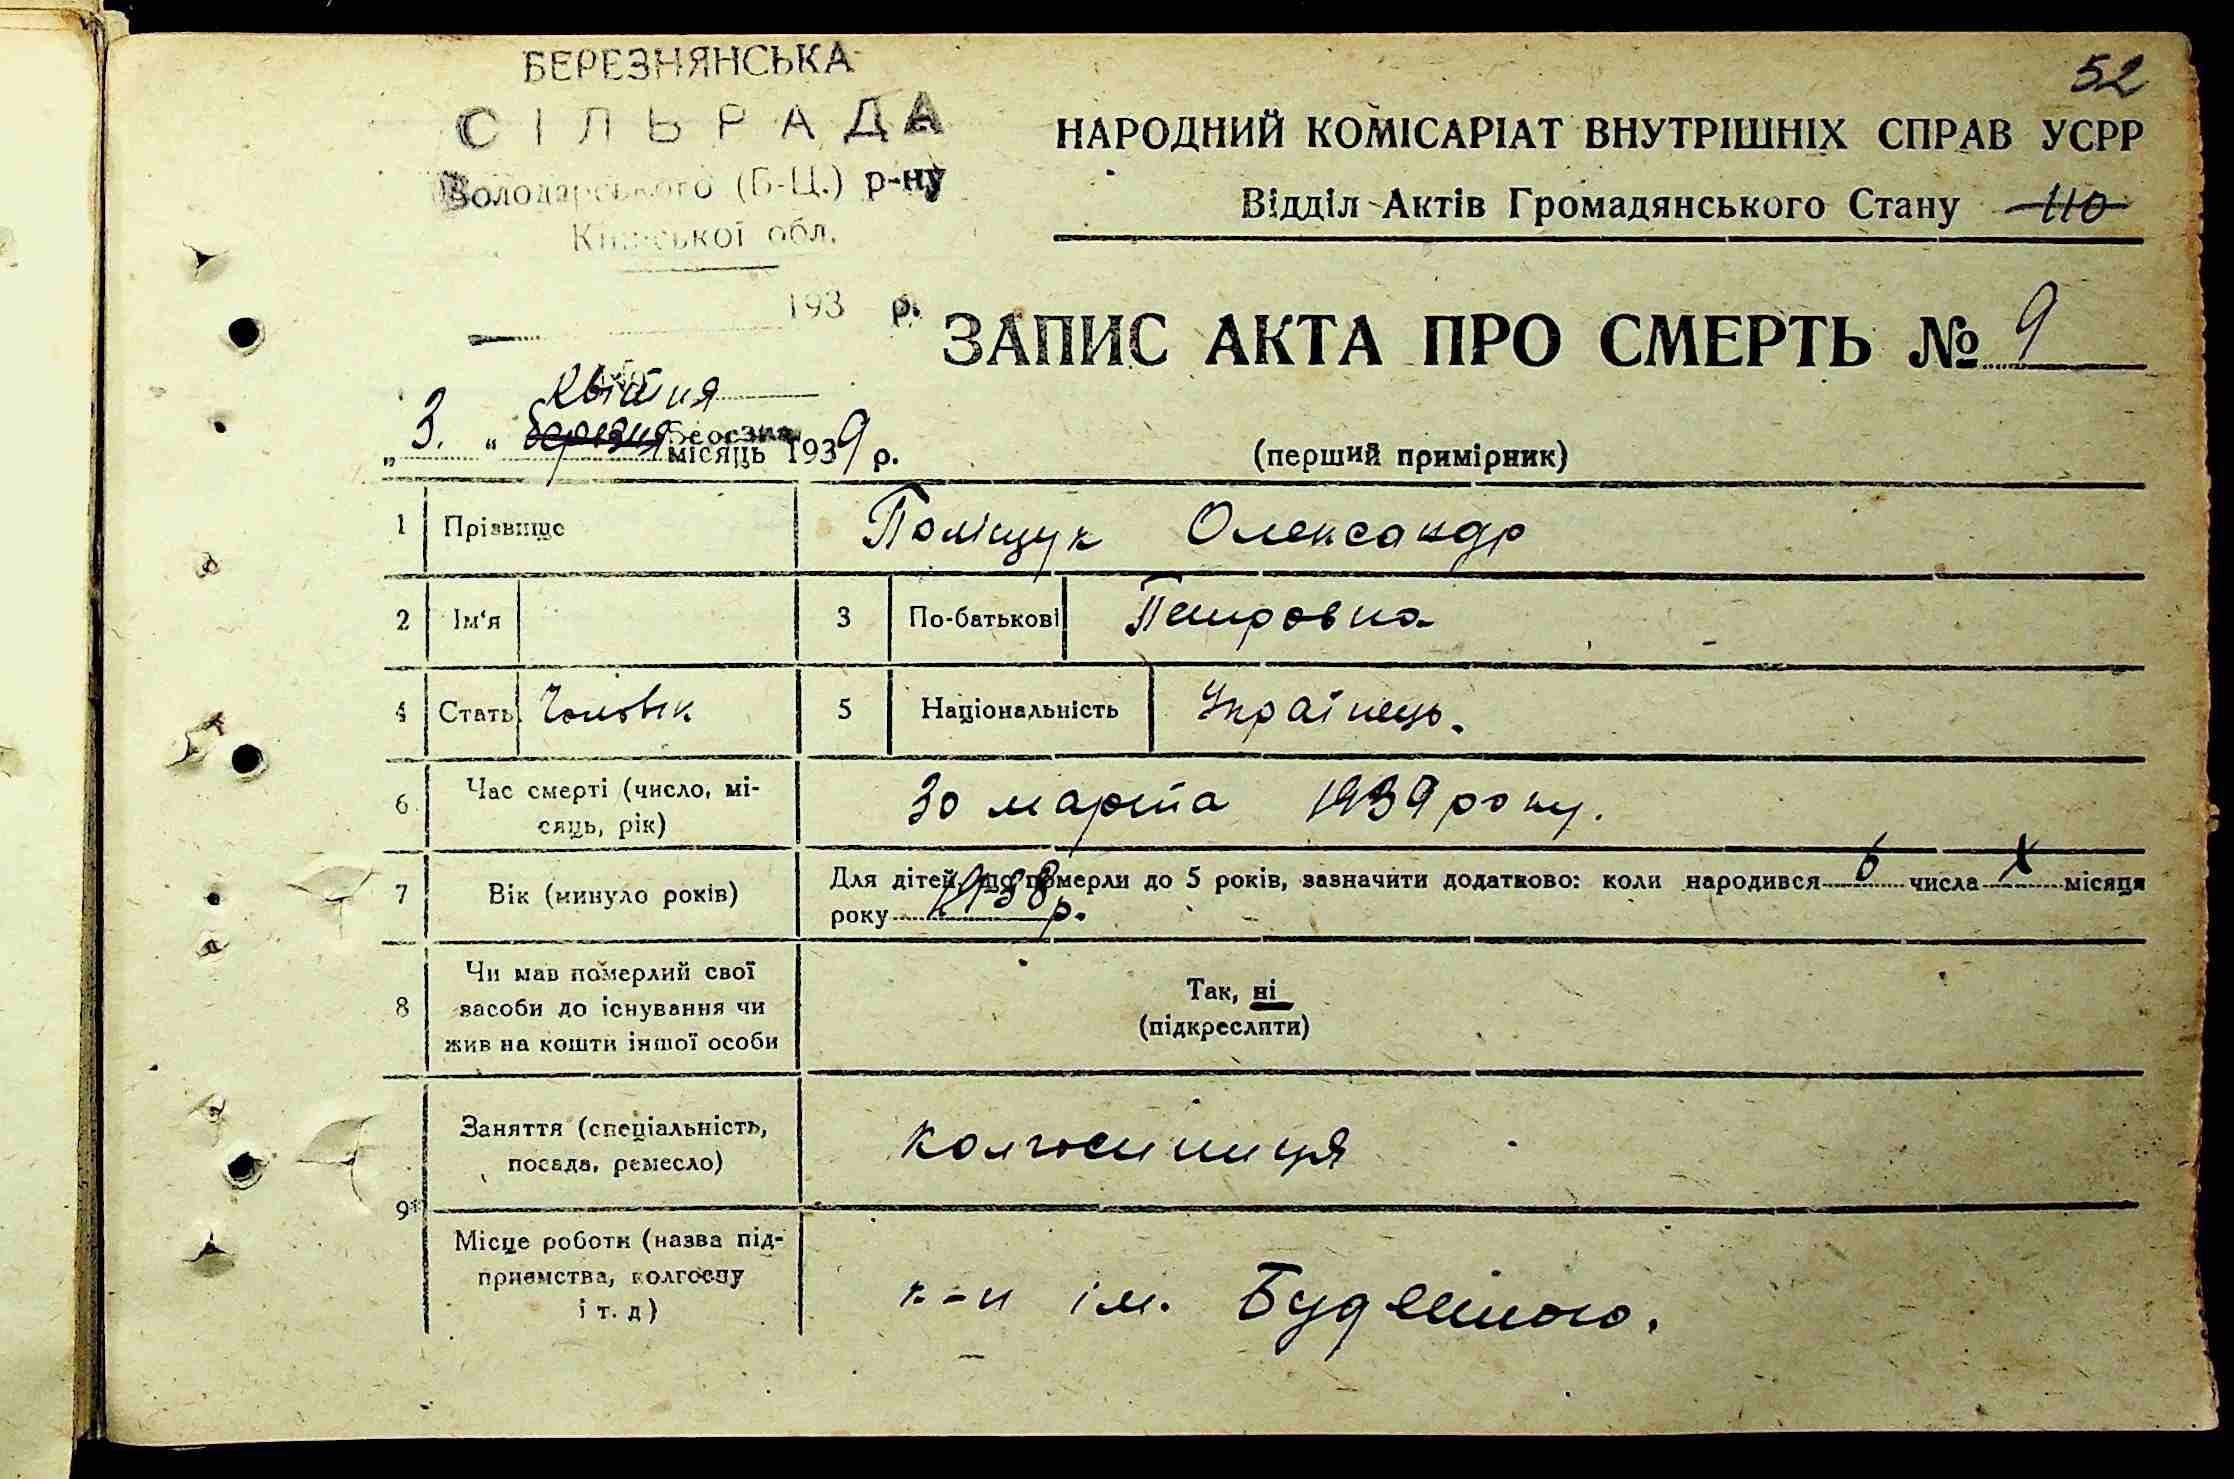 52
БЕРЕЗНЯНСЬКА
СІЛЬРАДА
Володарського (Б-Ц.) р-ну
Київської обл.
193 р.
НАРОДНИЙ КОМІСАРІАТ ВНУТРІШНІХ СПРАВ УСРР
Відділ Актів Громадянського Стану 110
ЗАПИС АКТА ПРО СМЕРТЬ № 9
квітня
„ 3. “ березня Березня місяць 1939 р.
(перший примірник)
1 Прізвище Поліщук Олександр
2 Ім‘я 3 По-батькові Петровна
4 Стать Чоловік 5 Національність Українець.
6 Час смерті (число, мі-
сяць, рік) 30 марта 1939 року.
7 Вік (минуло років) Для дітей, що померли до 5 років, зазначити додатково: коли народився 6 числа X місяця
року 1938 р.
8 Чи мав померлий свої
засоби до існування чи
жив на кошти іншої особи
Так, ні
(підкреслити)
9 Заняття (спеціальність,
посада, ремесло) колгоспниця
Місце роботи (назва під-
приємства, колгоспу
і т. д) к-п ім. Будённого.